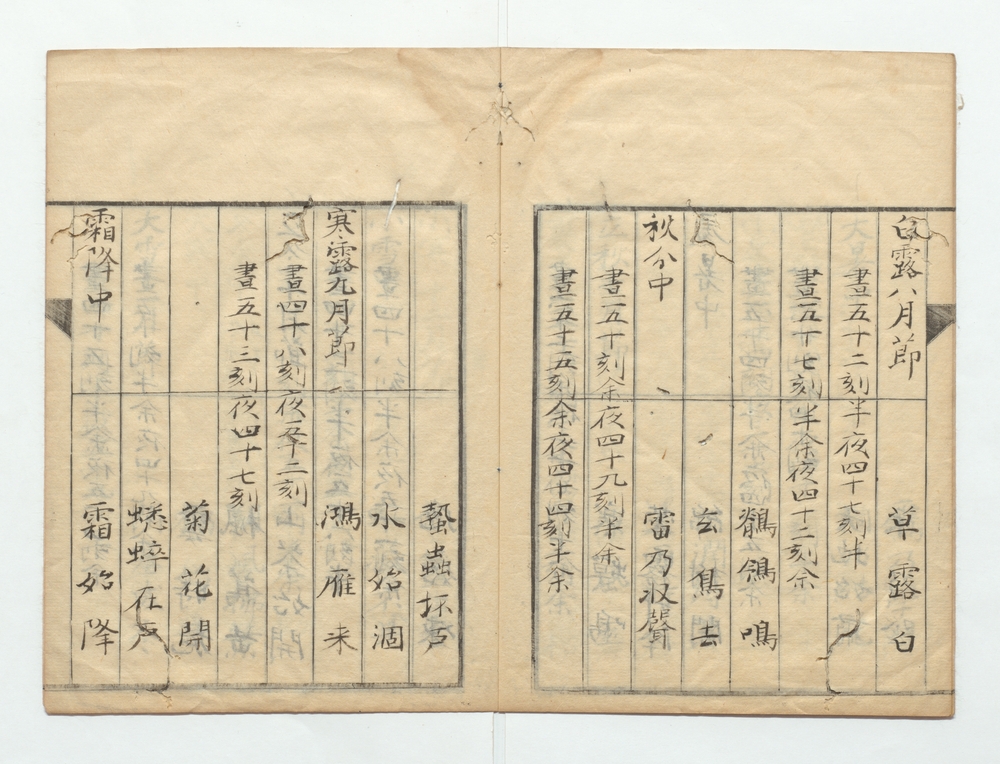 白露八月節
草露白
晝五十二刻半夜四十七刻半
晝五十七刻半余夜四十二刻余
鶺鴒鳴
玄鳥去
秋分中
雷乃収聲
晝五十刻余夜四十九刻半余
晝五十五刻余夜四十四刻半余
蟄蟲坏戸
水始涸
寒露九月節
鴻雁来
晝四十八刻夜五十二刻
晝五十三刻夜四十七刻
菊花開
蟋蟀在戸
霜降中
霜始降